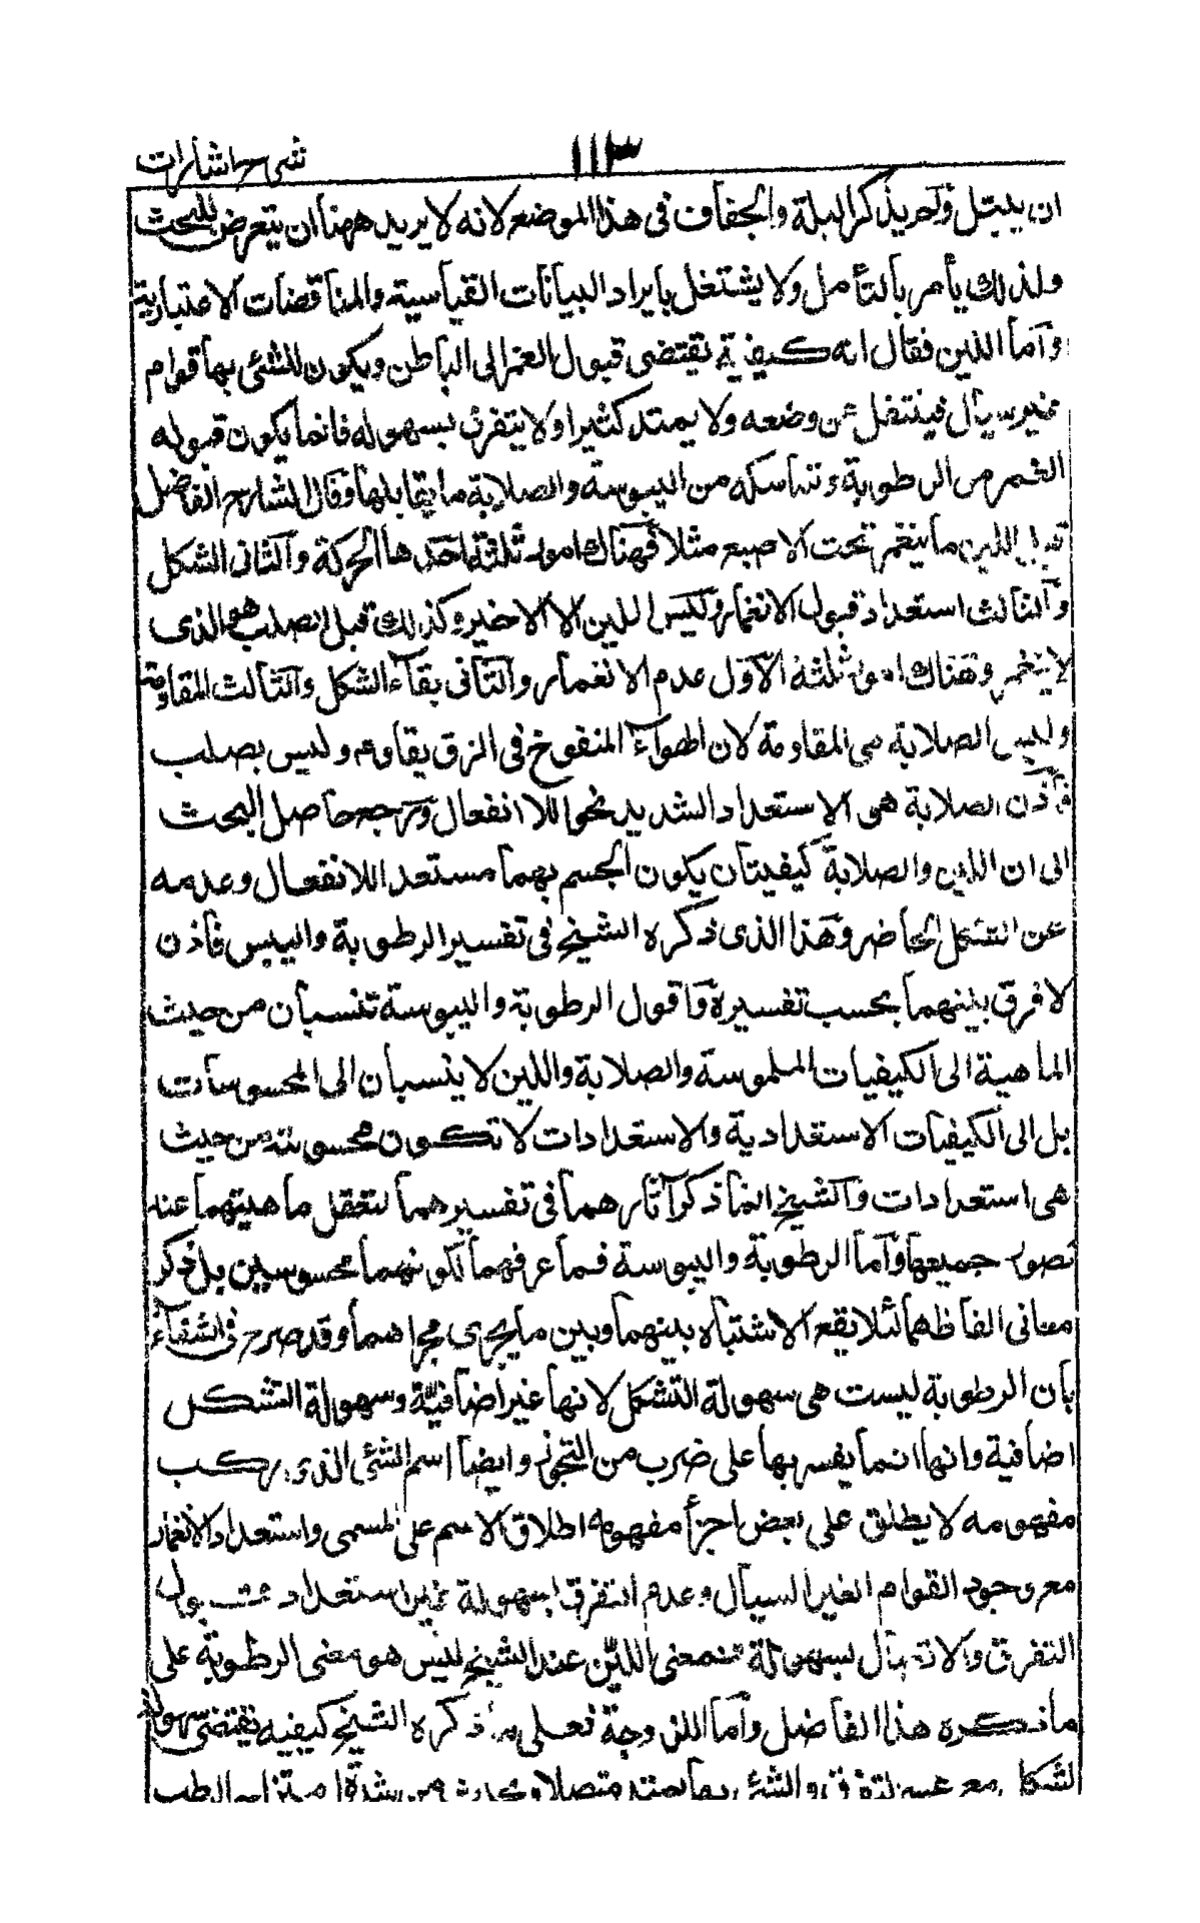 شرح اشارات ١١٣
ان يبتل ولم يذكر البلة والجفاف فى هذا الموضع لانه لا يريد ههنا ان يتعرض للبحث
ولذلك يأمر بالتأمل ولا يشتغل بايراد البيانات القياسية والمناقضات الاعتبارية
وآما اللين فقال انه كيفية تقتضى قبول الغمز الى الباطن ويكون للشئ بها قوام
غير سيال فينتقل عن وضعه ولا يمتد كثيرا ولا يتفرق بسهوله فانما يكون قبوله
الغمز من الرطوبة وتماسكه من اليبوسة والصلابة ما يقابلها وقال الشارح الفاضل
قيل اللين ما ينغمز تحت الاصبع مثلا فهناك امور ثلثة احدها الحركة والثانى الشكل
والثالث استعداد قبول الانغماز وليس اللين الا الاخير وكذلك قيل الصلب هو الذى
لا ينغمز وهناك امور ثلثة الآول عدم الانغماز والثانى بقآء الشكل والثالث المقاومة
وليس الصلابة هى المقاومة لان الهوآء المنفوخ فى الزق يقاوم وليس بصلب
فاذن الصلابة هى الاستعداد الشديد نحو اللا انفعال ويرجع حاصل البحث
الى ان اللين والصلابة كيفيتان يكون الجسم بهما مستعد اللانفعال وعدمه
عن الشكل الحاضر وهذا الذى ذكره الشيخ فى تفسير الرطوبة واليبس فاذن
لا فرق بينهما بحسب تفسيره وآقول الرطوبة واليبوسة تنسبان من حيث
الماهية الى الكيفيات الملموسة والصلابة واللين لا ينسبان الى المحسوسات
بل الى الكيفيات الاستعدادية والاستعدادات لا تكون محسوسة من حيث
هى استعدادات والشيخ انما ذكر آثارهما فى تفسيرهما لتعقل ماهيتهما عند
تصور جميعها وآما الرطوبة واليبوسة فما عرفهما لكونهما محسوسين بل ذكر
معانى الفاظهما لئلا يقع الاشتباه بينهما وبين ما يجرى مجراهما وقد صرح فى الشفآء
بان الرطوبة ليست هى سهولة التشكل لانها غير اضافية وسهولة التشكل
اضافية وانها انما يفسر بها على ضرب من التجوز وايضا اسم الشئ الذى يركب
مفهومه لا يطلق على بعض اجزأ مفهومه اطلاق الاسم على المسمى واستعداد الانغماز
مع وجود القوام الغير السيال وعدم التفرق بسهولة غير استعداد قبول
التفرق والاتصال بسهولة فمعنى اللين عند الشيخ ليس هو معنى الرطوبة على
ما ذكره هذا الفاضل وآما اللزوجة فعلى ما ذكره الشيخ كيفيه تقتضى سهولة
الشكل مع عسر التفرق والشئ بها يمتد متصلا ويحدث من شدة امتزاج الرطب